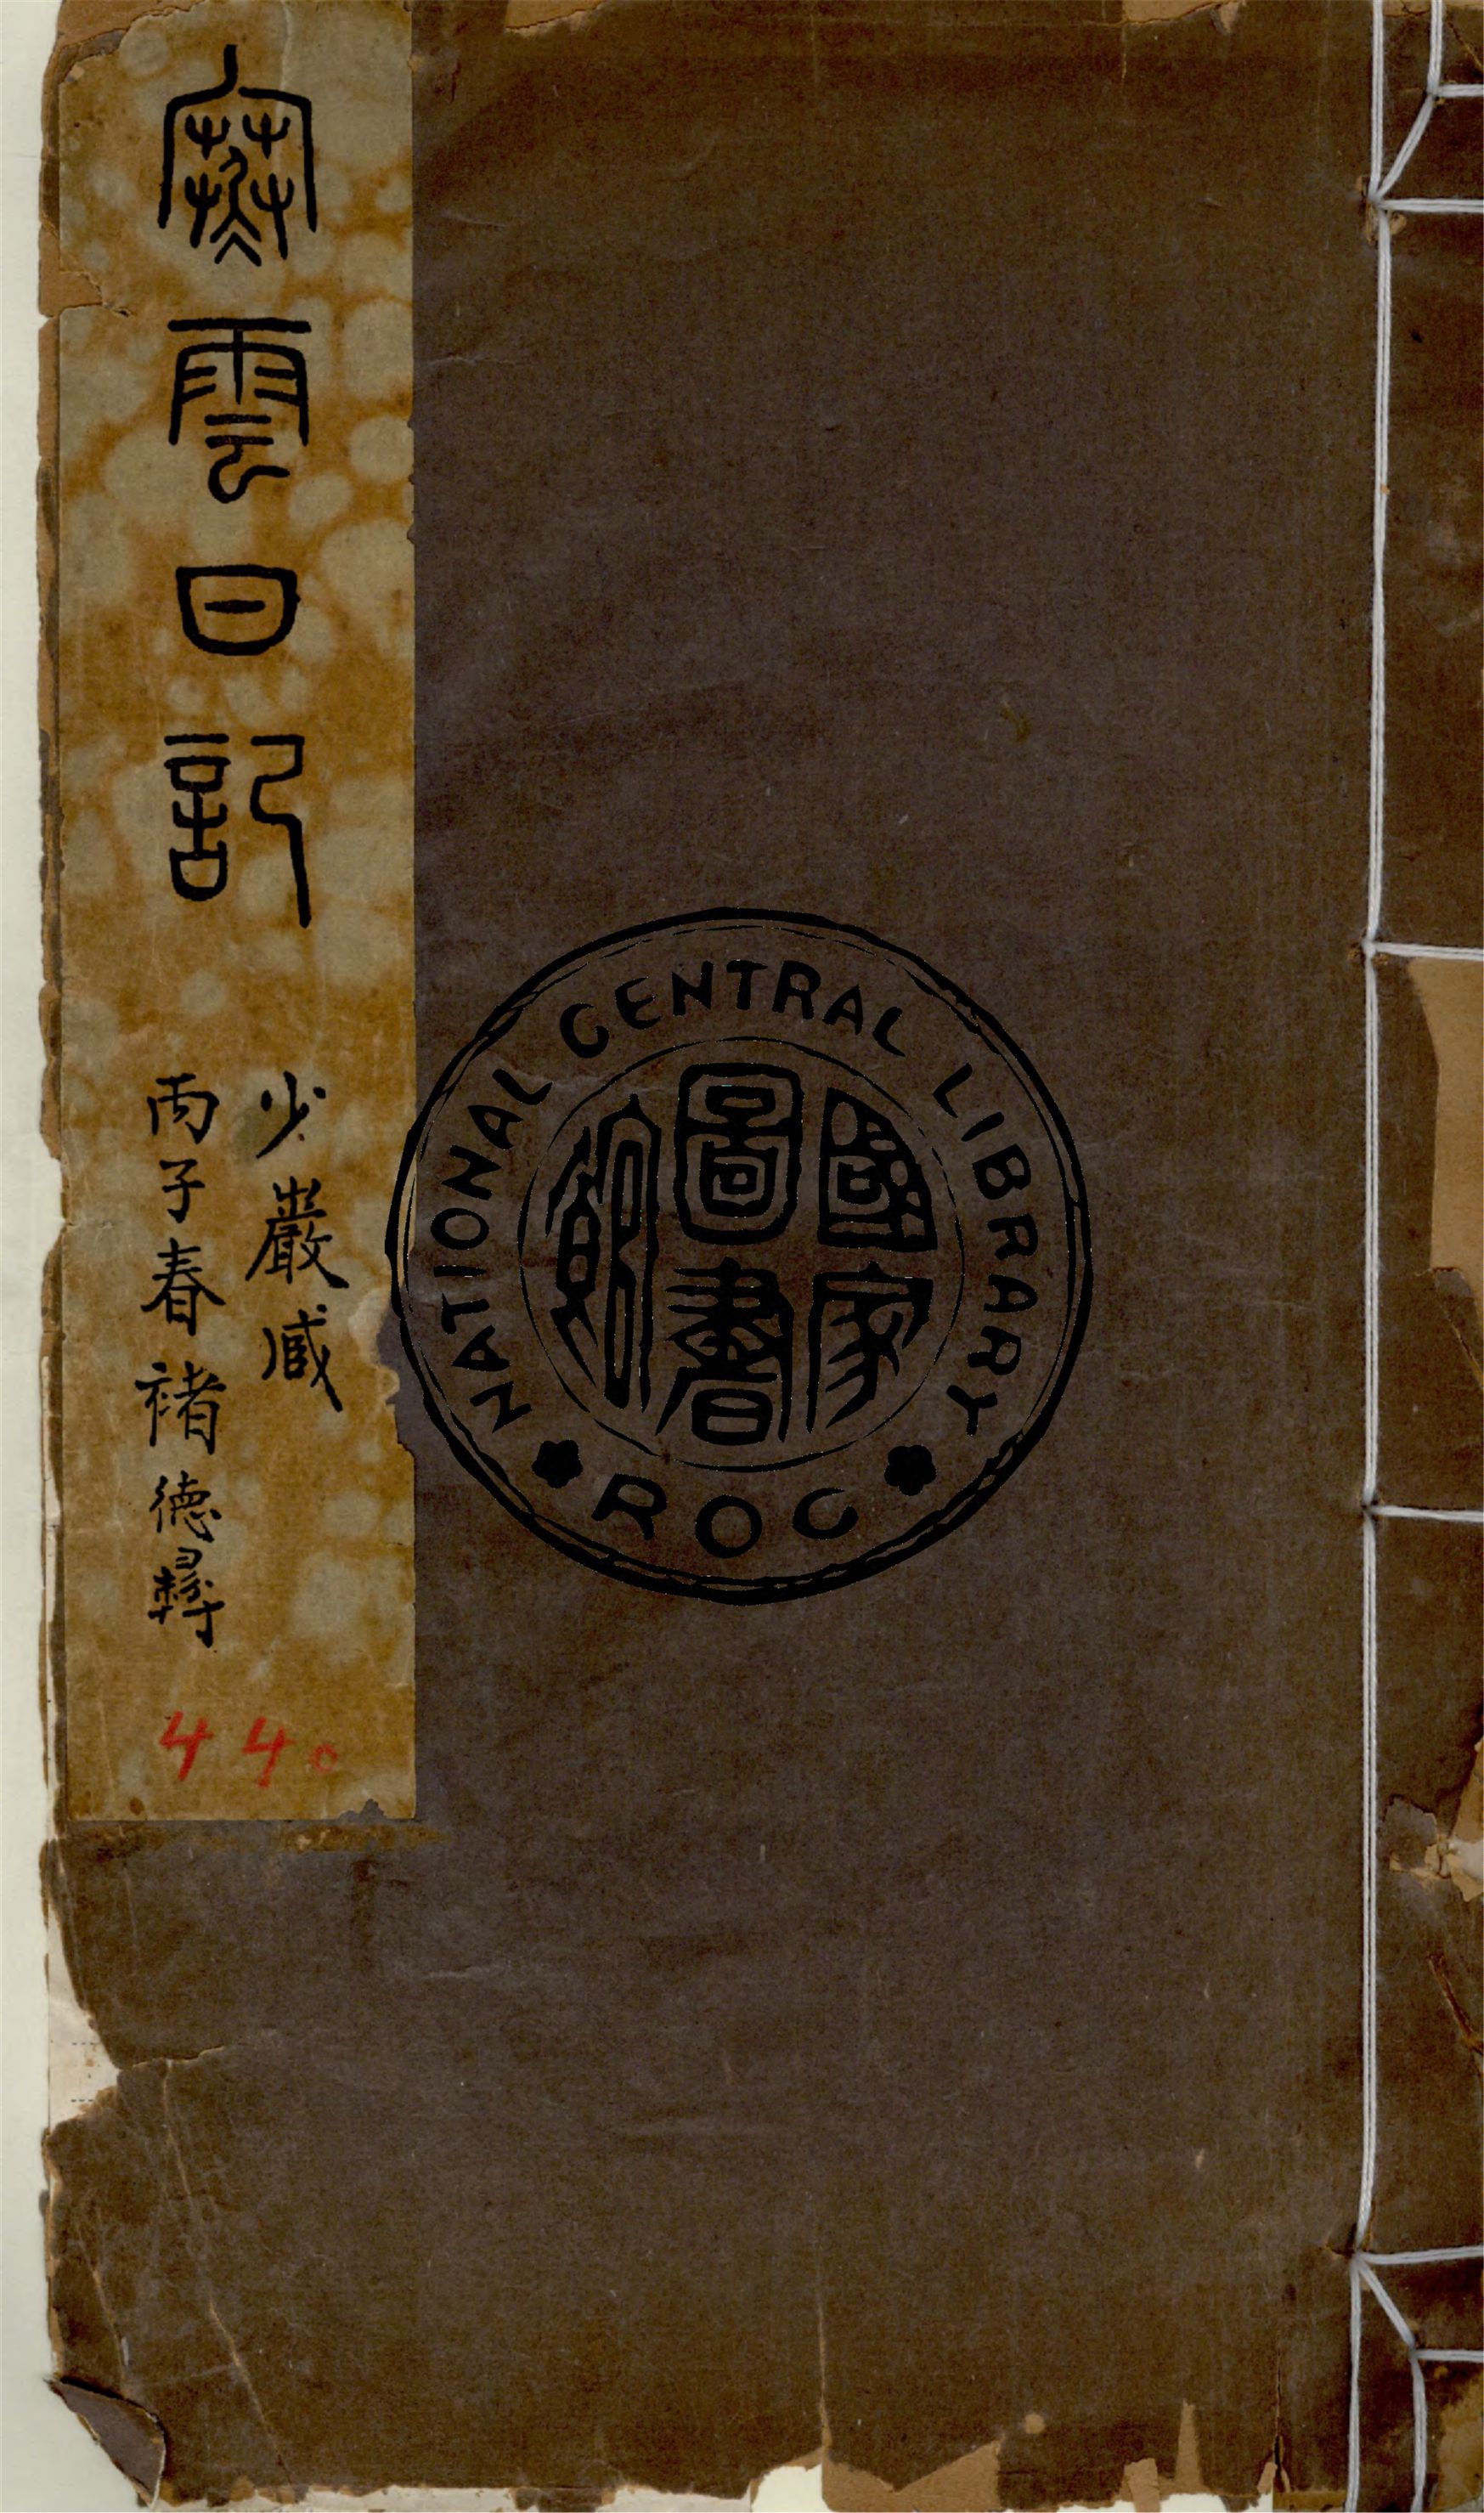 寒雲日記
少巖臧
丙子春褚德彝
440
NATIONAL CENTRAL LIBRARY
國家圖書館
ROC